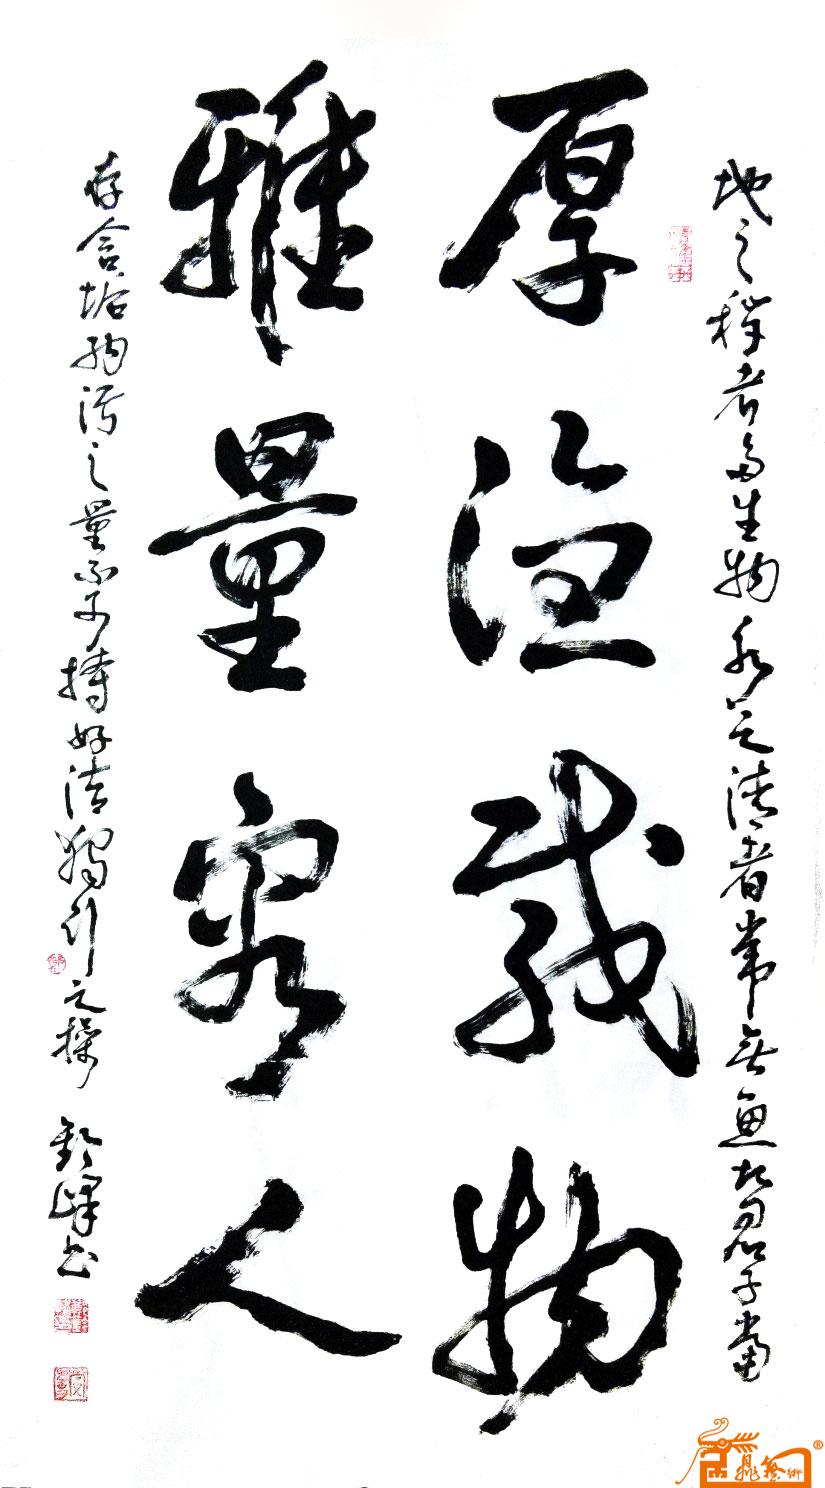 地之秽者多生物水之清者常无鱼故君子當
厚德载物
雅量容人
存含垢纳污之量不可持好洁獨行之操
峰书